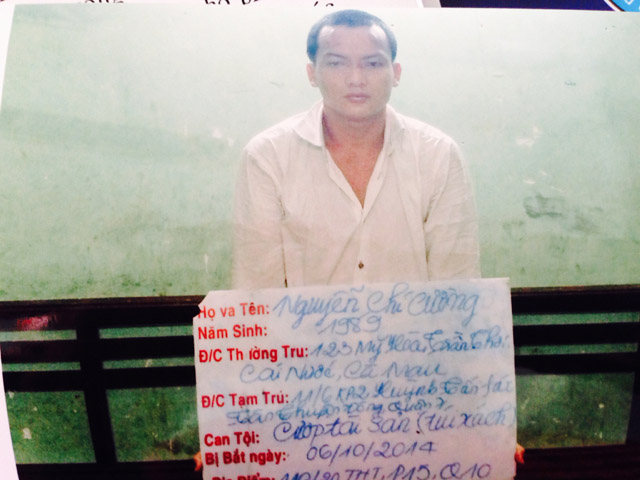 Họ và Tên: Nguyễn Chí Cường
Năm Sinh: 1989
Đ/C Thường Trú: 123 Mỹ Hòa, Trần Thới,
Cái Nước, Cà Mau
Đ/C Tạm Trú: 11/6 KP2, Huỳnh Tấn Phát
Tân Thuận Đông, Quận 7
Can Tội: Cướp tài sản (túi xách)
Bị Bắt ngày: 06/10/2014
Địa Điểm: THT, P15, Q10